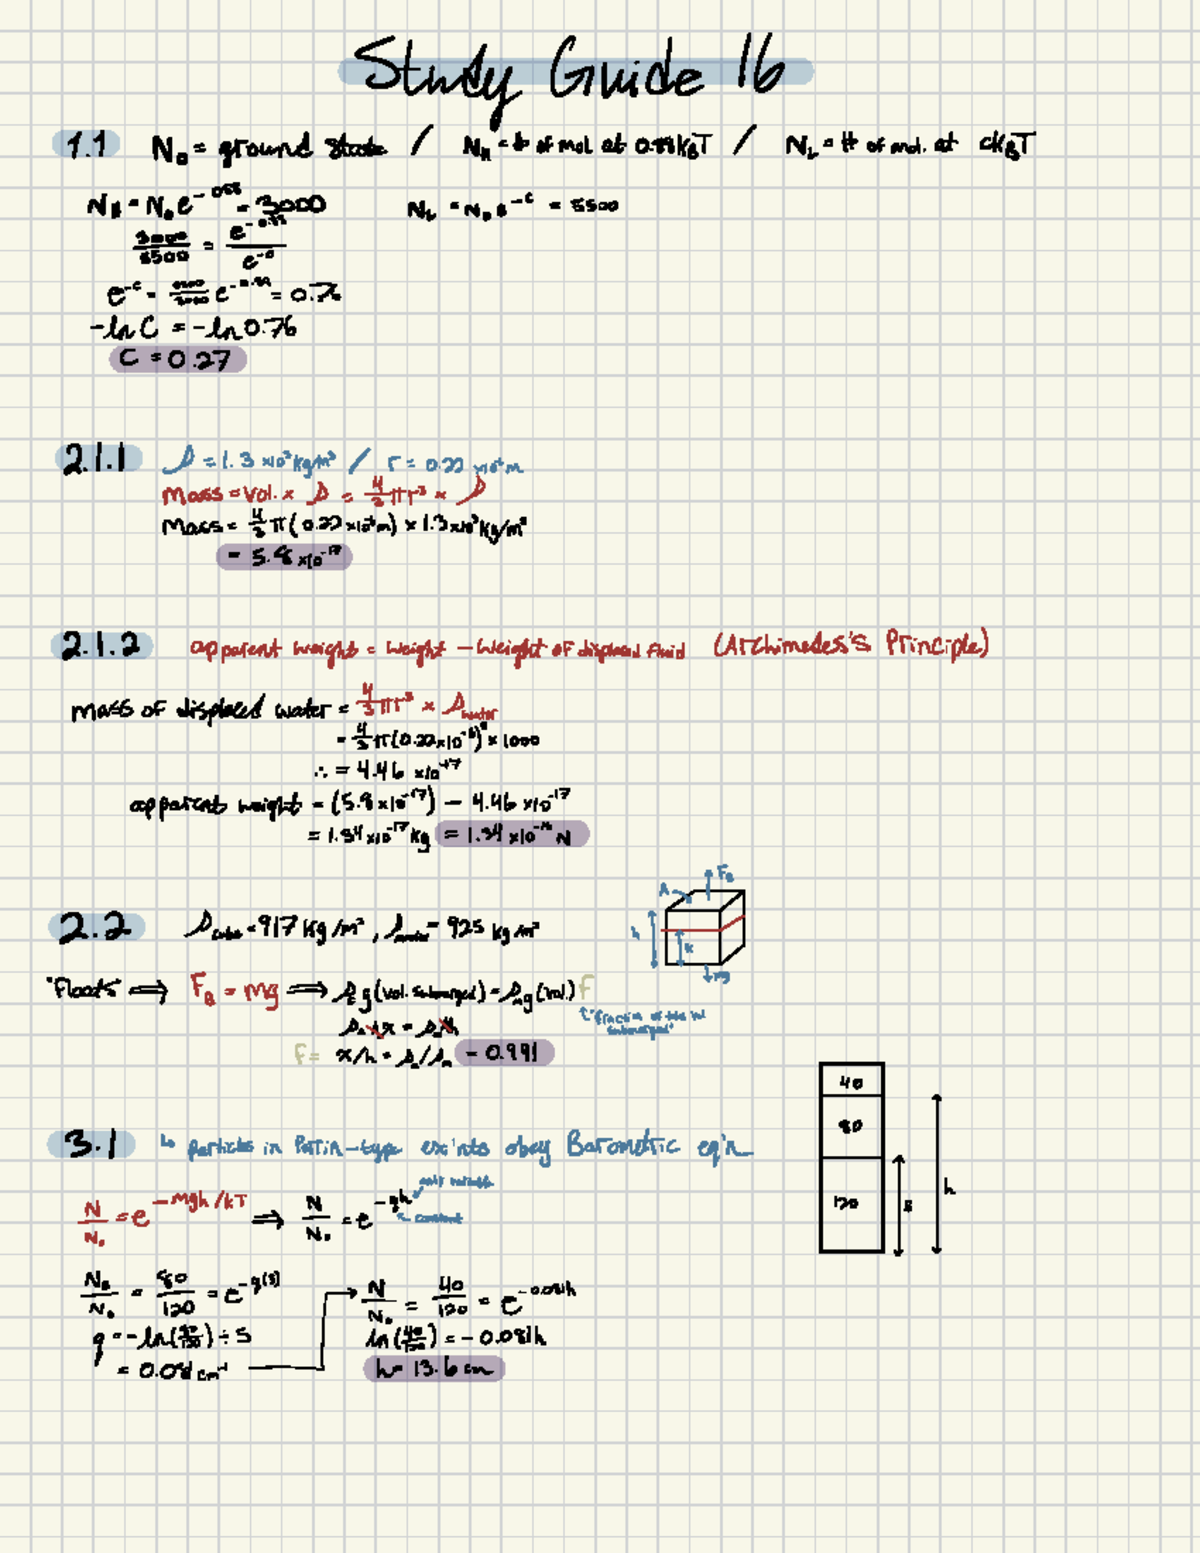 Study Guide 16
1.1 N₀ = ground state / N_H = # of mol at 0.88k_BT / N_L = # of mol. at ck_BT
N_H = N₀e^-0.88 = 3000 N_L = N₀e^-c = 5500
3000/5500 = e^-0.88/e^-c
e^-c = 5500/3000 e^-0.88 = 0.76
-ln C = -ln 0.76
C = 0.27
2.1.1 ρ = 1.3 x10³ kg/m³ / r = 0.22 x10⁻⁶m
Mass = Vol. x ρ = 4/3 πr³ x ρ
Mass = 4/3 π(0.22 x10⁻⁶m) x 1.3 x10³ kg/m³
= 5.8 x10⁻¹⁷
2.1.2 apparent weight = weight - weight of displaced fluid (Archimedes's Principle)
mass of displaced water = 4/3 πr³ x ρ_water
= 4/3 π(0.22x10⁻⁶)³ x 1000
∴ = 4.46 x10⁻¹⁷
apparent weight = (5.8 x10⁻¹⁷) - 4.46 x10⁻¹⁷
= 1.34 x10⁻¹⁷ kg = 1.34 x10⁻¹⁶ N
A F_B
h x
mg
2.2 ρ_cube = 917 kg/m³, ρ_water = 925 kg/m³
"Floats" ⟹ F_B = mg ⟹ ρ_f g (vol. submerged) = ρ_m g (vol.) F
"fraction of the vol submerged"
F = x/h = = 0.991
3.1 ↳ particles in Perrin-type ex'nts obey Barometric eq'n
N/N₀ = e^-mgh/kT ⟹ N/N₀ = e^-qh
only variable
constant
40
80
120
5 h
N₅/N₀ = 80/120 = e^-q(5)
q = -ln(80/120) ÷ 5
= 0.081 cm⁻¹
N/N₀ = 40/120 = e^-0.081h
ln(40/120) = -0.081h
h = 13.6 cm